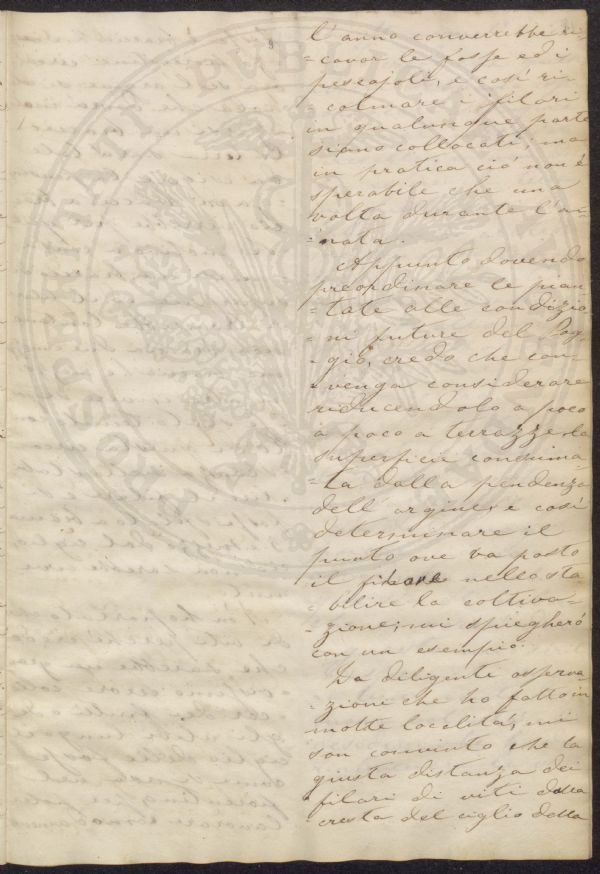 l'anno converrebbe ri-
=cavar le fosse ed i
pescajoli, e così ri-
=colmare i filari
in qualunque parte
siano collocati; ma
in pratica ciò non è
sperabile che una
volta durante l'an-
=nata.
Appunto dovendo
preordinare le pian-
=tate alle condizio
=ni future del Pog-
=gio, credo che con-
=venga considerare
riducendolo a poco
a poco a terrazze la
superficie consuma-
=ta dalla pendenza
dell'argine; e così
determinare il
punto ove va posto
il filare nello sta
=bilire la coltiva-
=zione; mi spiegherò
con un esempio.
Da diligente osserva-
=zione che ho fatto in
molte località, mi
son convinto che la
giusta distanza dei
filari di viti dalla
cresta del ciglio della